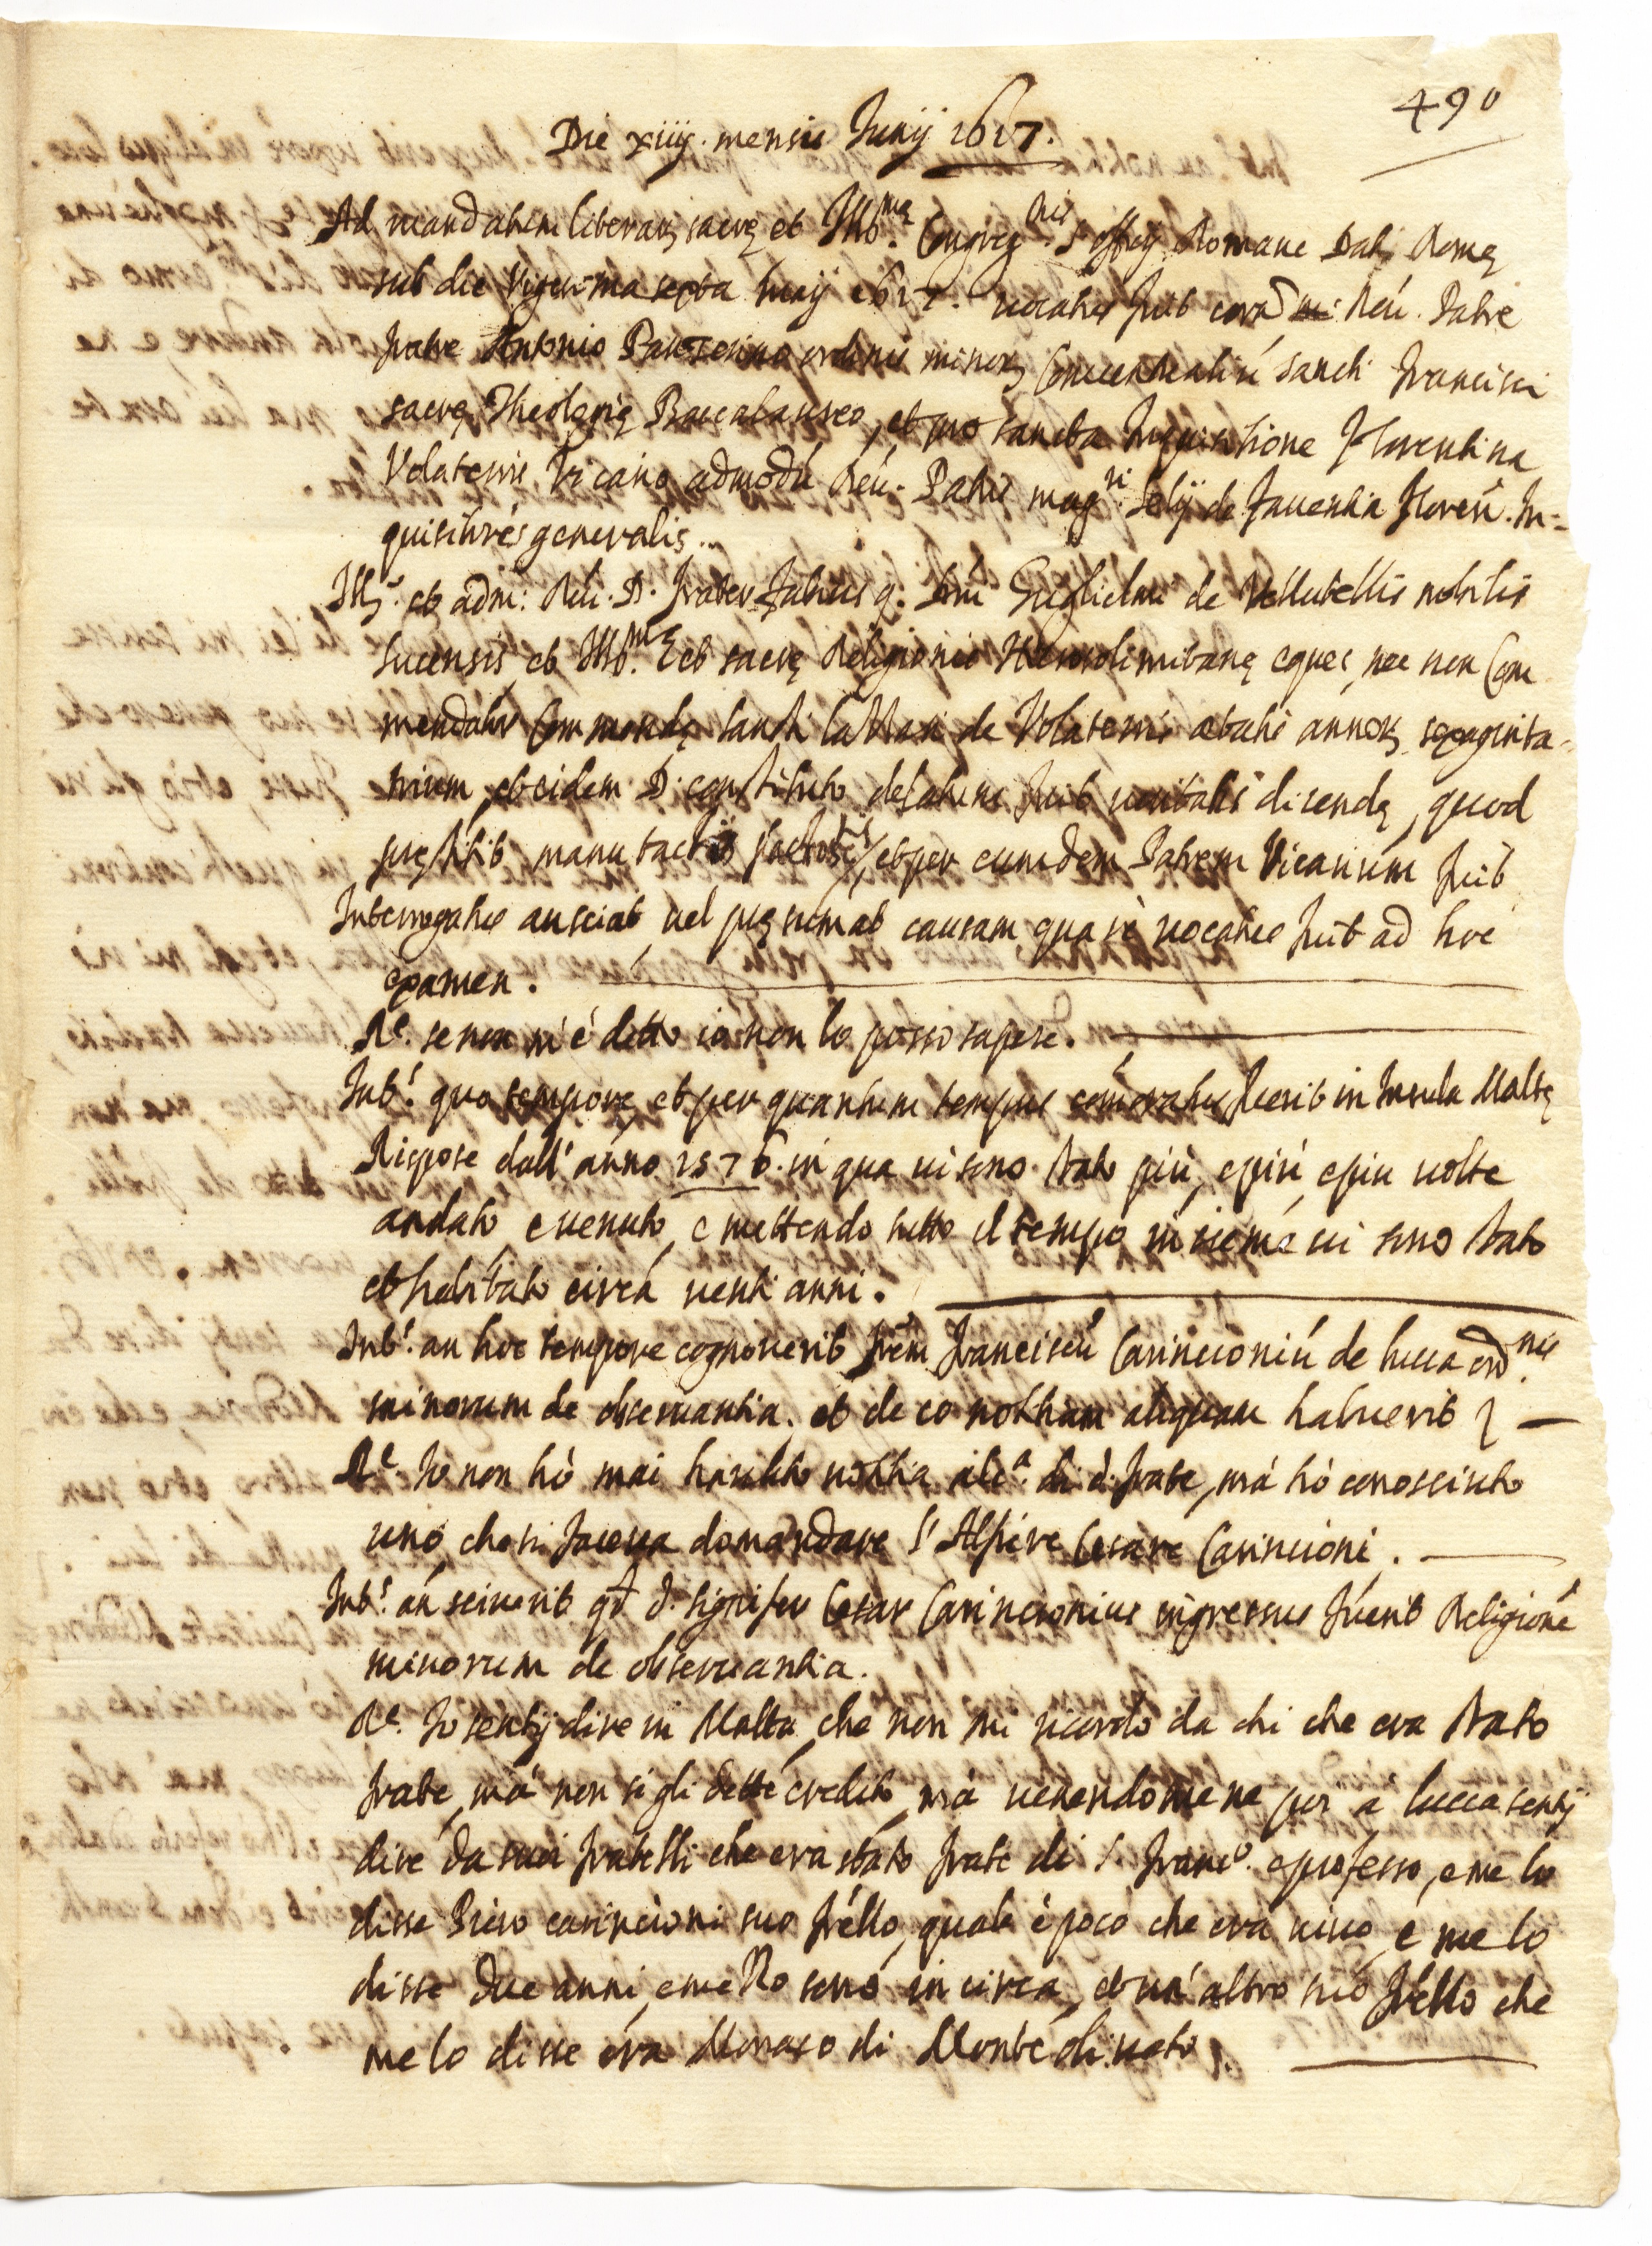 490
Die xiiij. mensis Junij 1617.
Ad mandatum literarũ sacrę et Illᵐᵉ. Congregⁿⁱˢ S. Officij Romane Datį Romę
sub die Vigesima sexta maij 1617. uocatus fuit corã Reũ. Patre
fratre Antonio ordinis minorũ Conuentualiũ sancti Francisci
sacrę Theologię Baccalaureo, et pro sancta Inquisitione Florentina
Volaterris Vicario admodũ Reũ. Patris magʳⁱ. Lelij de Fauentia Floreñ. In=
quisitoris generalis.
Illr̃. et adm: Reũ. D. frater Fabius q. Dñi Guglielmi de Vellutellis nobilis
Lucensis, et Illᵐᵉ. et sacrę Religionis Hierosolimitanę eques, nec non Com
mendatr Commendę sancti de Volaterris ętatis annorũ sexaginta=
trium, et eidem D. constituto delatum fuit ueritatis dicendę, quod
pręstitit manu tactis, et per eumdem Patrem Vicarium fuit
Interrogatus an sciat, uel pręsumat causam qua rè uocatus fuit ad hoc
examen.
Rᵉ. se non m'è detto io non lo posso sapere.
Intˢ. quo tempore, et per quantum tempus com̃oratus fuerit in Insula Maltę
Rispose dall' anno 1576. in qua ui sono stato più, e più, e piu uolte
andato, e uenuto, e mettendo tutto il tempo insieme ui sono stato
et habitato circa uenti anni.
Intˢ. an hoc tempore cognouerit frẽm Franciscũ Carincioniũ de Lucca ordⁿⁱˢ.
minorum de obseruantia. et de eo notitiam aliquam habuerit
Rᵉ. Io non hò mai hauuto notitia alcᵃ. di d. frate, mà hò conosciuto
uno, che si faceua domandare l'Alfiere Cesare Carincioni.
Intˢ. an sciuerit qđ d. signifer Cesar Carincionius ingressus fuerit Religionẽ
minorum de obseruantia.
Rᵉ. Io sentij dire in Malta, che non mi ricordo da chi che era stato
frate, mà non si gli dette credito, mà uenendomene poi à Lucca sentij
dire da suoi fratelli che era stato frate di S. Francᵒ. e professo, e me lo
disse Piero carincioni suo frẽllo, quale è poco che era uiuo, e me lo
disse due anni, e me sono in circa, et un' altro suo frẽllo che
me lo disse era Monaco di Monte oliueto.